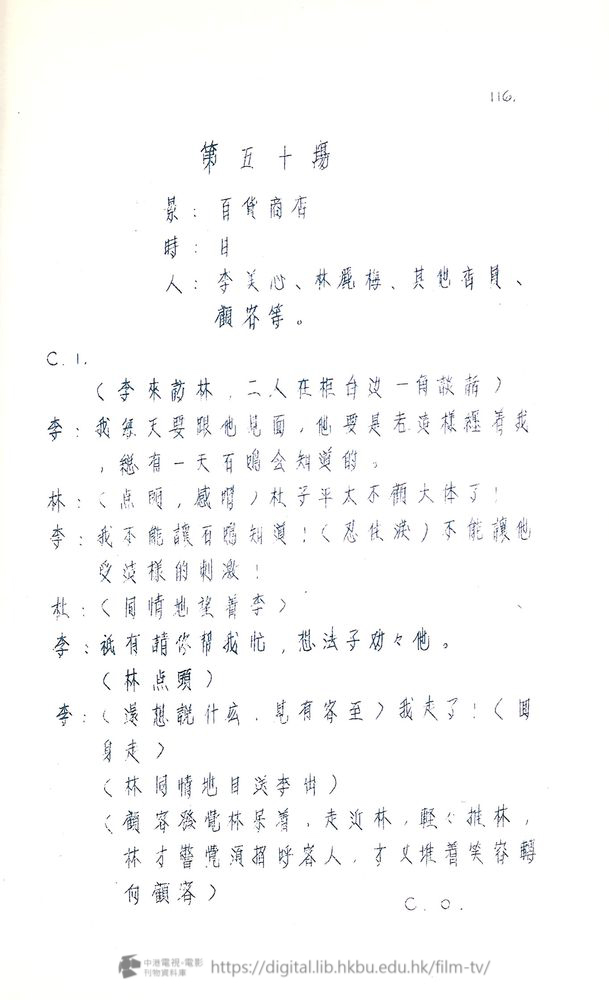 116.
第五十場
景：百貨商店
時：日
人：李美心、林麗梅、其他店員、
顧客等。
C.1.
（李來訪林，二人在柜台边一角談話）
李：我每天要跟他見面，他要是老這樣纒着我
，總有一天石鳴会知道的。
林：（点頭，感嘆）杜子平太不顧大体了！
李：我不能讓石鳴知道！（忍住淚）不能讓他
受這樣的刺激！
杜：（同情地望着李）
李：祇有請你帮我忙，想法子劝々他。
（林点頭）
李：（還想説什么，見有客至）我走了！（回
身走）
（林同情地目送李出）
（顧客發覺林呆着，走近林，輕々推林，
林才警覺須招呼客人，才又堆着笑容轉
向顧客）
C.O.
中港電視·電影
刊物資料庫
https://digital.lib.hkbu.edu.hk/film-tv/